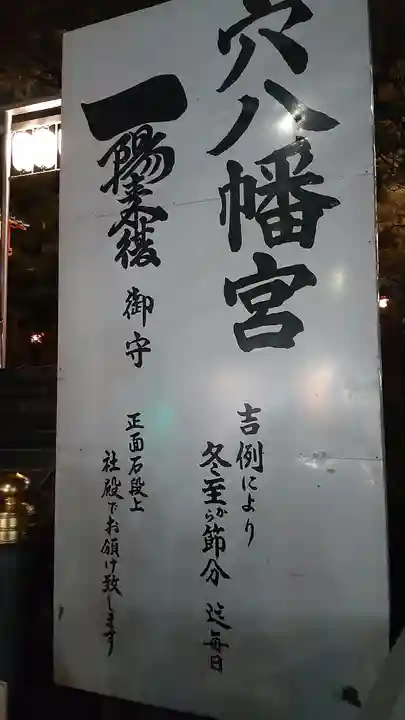 穴八幡宮
吉例により
冬至から節分迄毎日
一陽来復御守
正面石段上
社殿でお頒け致します